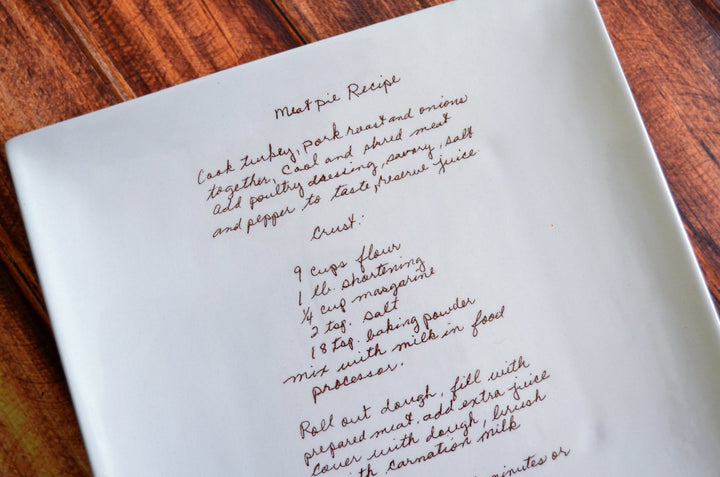 Meat pie Recipe
Cook turkey, pork roast and onions
together, Cool and shred meat
add poultry dressing, savory, salt
and pepper to taste, reserve juice
Crust:
9 cups flour
1 lb. shortening
1/4 cup margarine
2 tsp. salt
18 tsp. baking powder
mix with milk in food
processor.
Roll out dough, fill with
prepared meat, add extra juice
cover with dough, brush
with carnation milk
minutes or